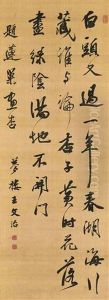 白頭又過一年春湖海行
藏誰與論杏子黃時花落
盡綠陰滿地不開門
題蓬畫杏 夢樓王文治